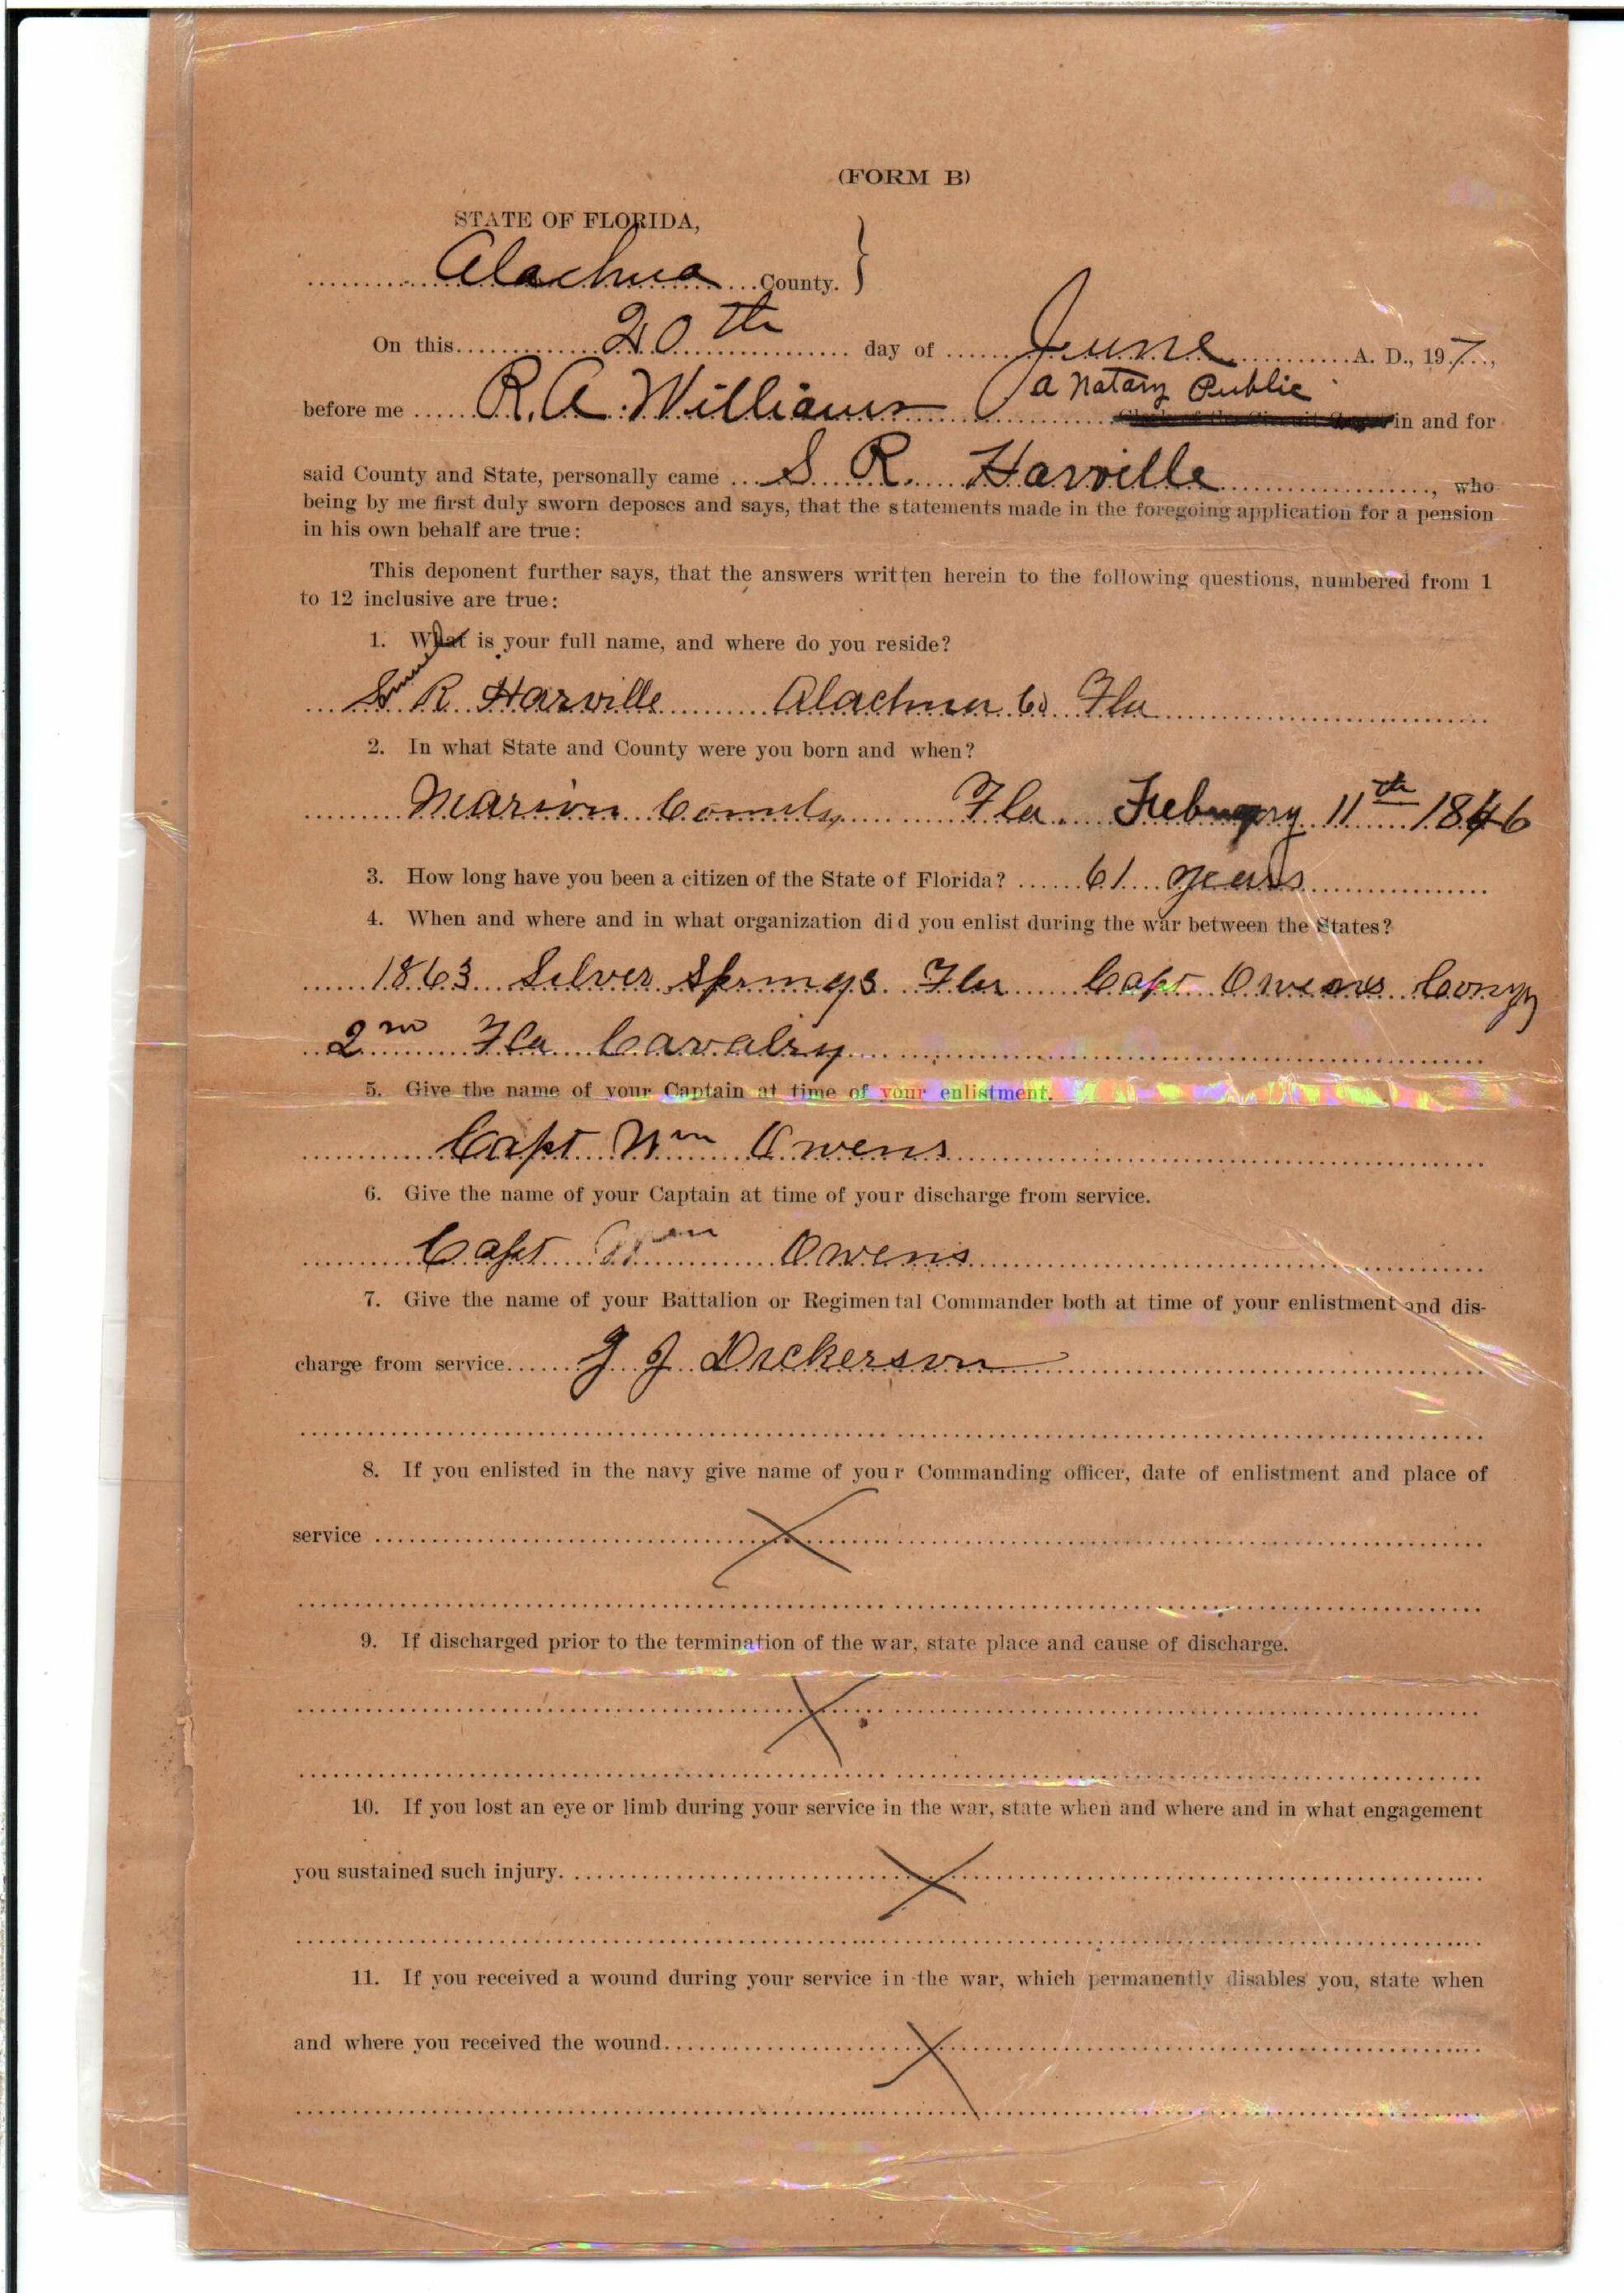 (FORM B)
STATE OF FLORIDA,
Alachua County. }
On this 20th day of June A. D., 197,
a Notary Public
before me R. A. Williams in and for
said County and State, personally came S R. Harville, who
being by me first duly sworn deposes and says, that the statements made in the foregoing application for a pension
in his own behalf are true:
This deponent further says, that the answers written herein to the following questions, numbered from 1
to 12 inclusive are true:
1. What is your full name, and where do you reside?
R. Harville Alachua Co Fla
2. In what State and County were you born and when?
Marion County Fla. 11th 1846
3. How long have you been a citizen of the State of Florida? 61 years
4. When and where and in what organization did you enlist during the war between the States?
1863 Silver Springs Fla Capt Owens Compy
2nd Fla Cavalry
5. Give the name of your Captain at time of your enlistment.
Capt Wm Owens
6. Give the name of your Captain at time of your discharge from service.
Capt Wm Owens
7. Give the name of your Battalion or Regimental Commander both at time of your enlistment and dis-
charge from service J J Dickerson
8. If you enlisted in the navy give name of your Commanding officer, date of enlistment and place of
service X
9. If discharged prior to the termination of the war, state place and cause of discharge.
X
10. If you lost an eye or limb during your service in the war, state when and where and in what engagement
you sustained such injury. X
11. If you received a wound during your service in the war, which permanently disables you, state when
and where you received the wound X